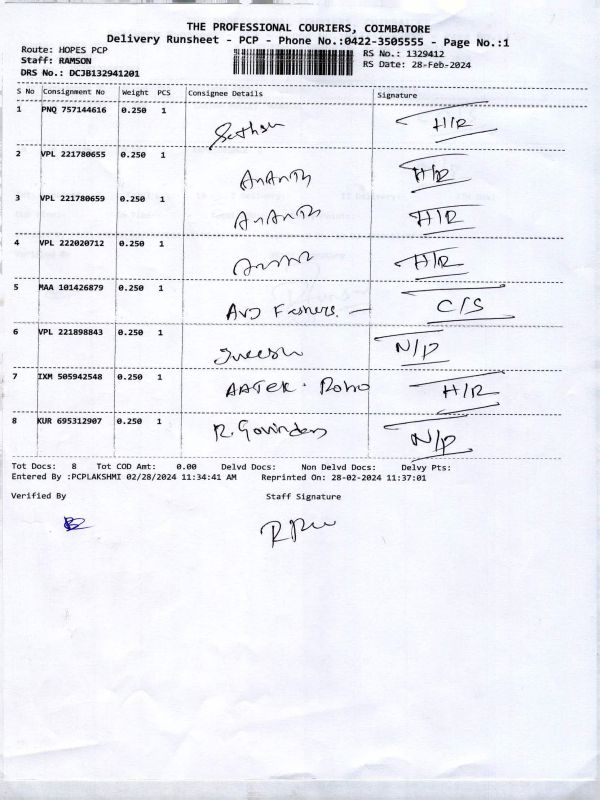 THE PROFESSIONAL COURIERS, COIMBATORE
Delivery Runsheet - PCP - Phone No.:0422-3505555 - Page No.:1
Route: HOPES PCP
RS No.: 1329412
Staff: RAMSON
RS Date: 28-Feb-2024
DRS No.: DCJB132941201
S No Consignment No Weight PCS Consignee Details Signature
1 PNQ 757144616 0.250 1 H/R
2 VPL 221780655 0.250 1 H/R
ANANTH
3 VPL 221780659 0.250 1 H/R
ANANTH
4 VPL 222020712 0.250 1 H/R
5 MAA 101426879 0.250 1 C/S
6 VPL 221898843 0.250 1 N/P
7 IXM 505942548 0.250 1 H/R
8 KUR 695312907 0.250 1 N/P
R. Govinden
Tot Docs: 8 Tot COD Amt: 0.00 Delvd Docs: Non Delvd Docs: Delvy Pts:
Entered By :PCPLAKSHMI 02/28/2024 11:34:41 AM Reprinted On: 28-02-2024 11:37:01
Verified By Staff Signature